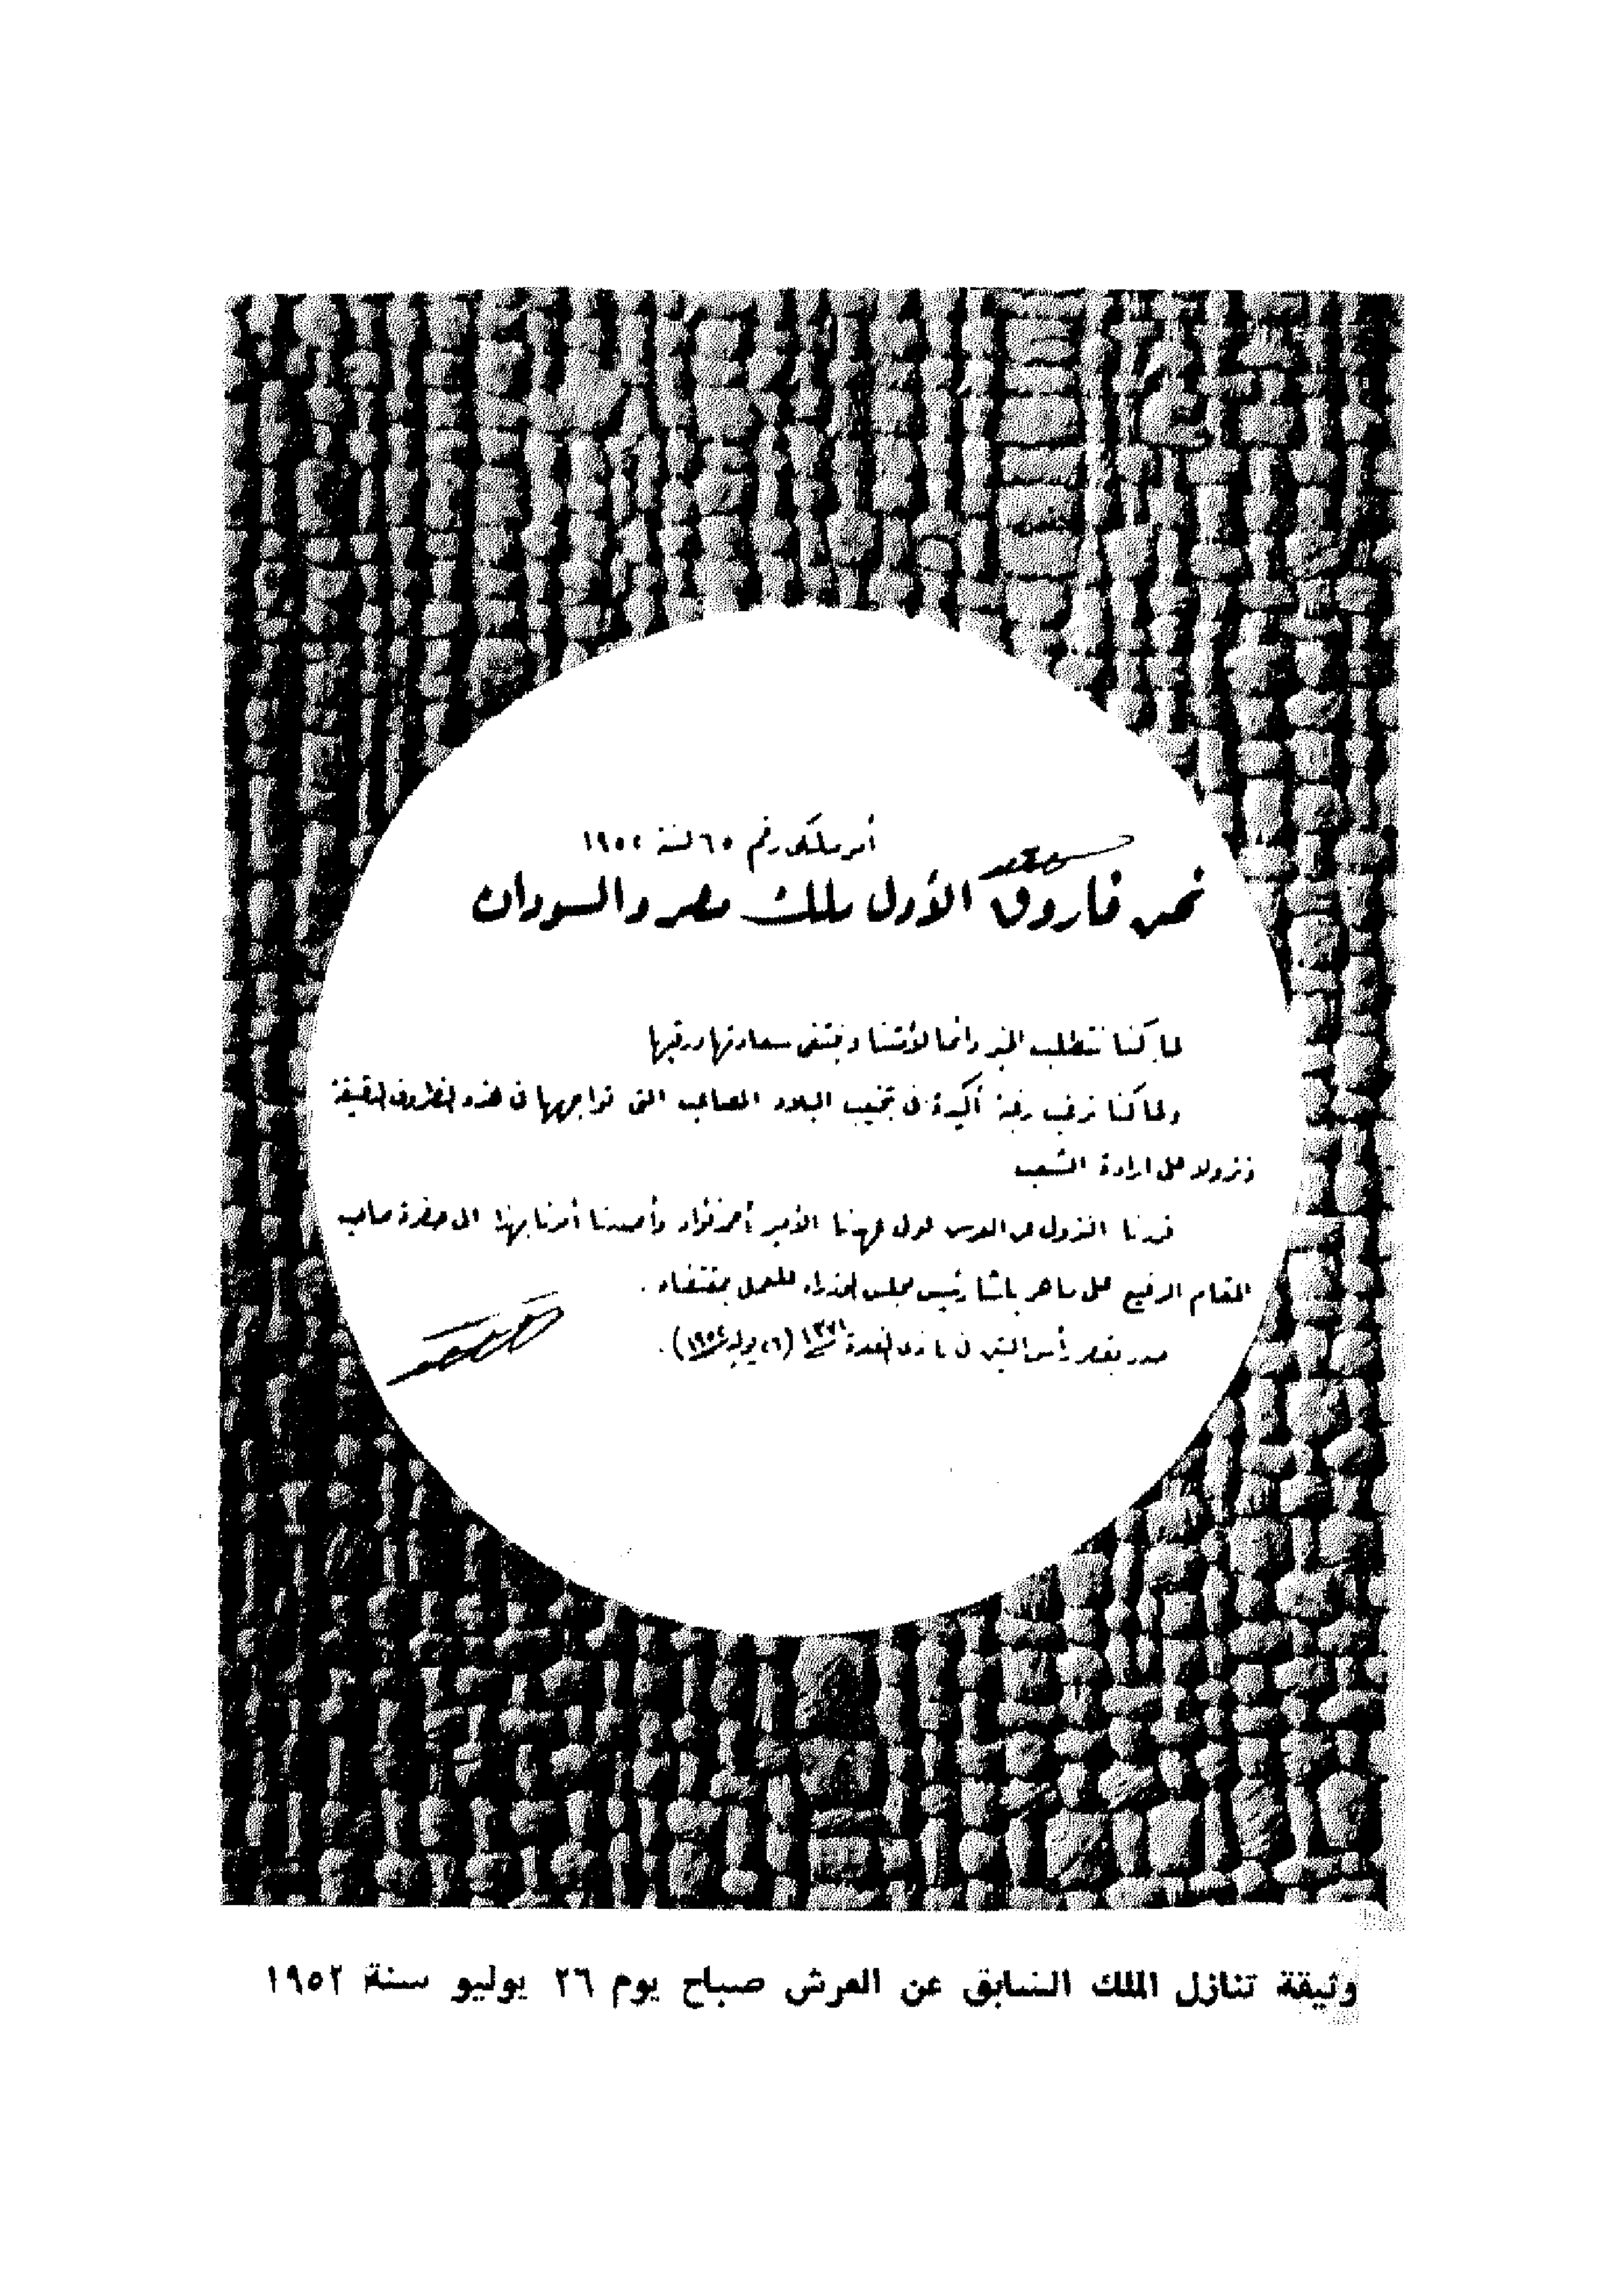 أمر ملكى رقم ٦٥ لسنة ١٩٥٢
نحن فاروق الأول ملك مصر والسودان
لما كنا نتطلب الخير دائما لأمتنا ونبتغى سعادتها ورقيها
ولما كنا نرغب رغبة أكيدة فى تجنيب البلاد المصاعب التى تواجهها فى هذه الظروف الدقيقة
ونزولا على ارادة الشعب
قررنا النزول عن العرش لولى عهدنا الأمير أحمد فؤاد وأصدرنا أمرنا بهذا الى حضرة صاحب
المقام الرفيع على ماهر باشا رئيس مجلس الوزراء للعمل بمقتضاه .
صدر بقصر رأس التين فى ٤ ذى القعدة ١٣٧١ (٢٦ يوليه ١٩٥٢) .
وثيقة تنازل الملك السابق عن العرش صباح يوم ٢٦ يوليو سنة ١٩٥٢